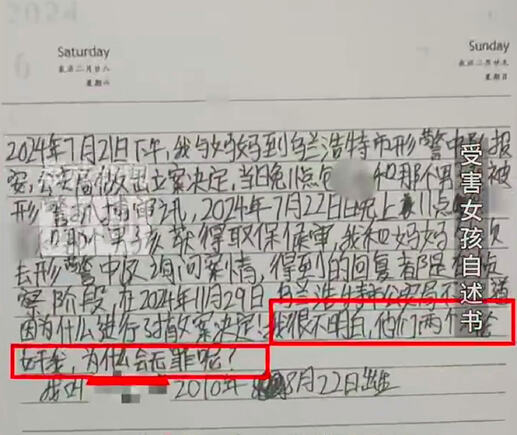 2024
Saturday
农历二月廿八
星期六
6
Sunday
农历二月廿九
星期日
2024年7月21日下午,我与妈妈到乌兰浩特市形警中队报
案,公安局做出立案决定,当日晚11点包和那个男被
形警队捕审讯,2024年7月22日晚上11点
那男孩获得取保候审,我和妈妈次
去形警中队询问案情,得到的回复都是在侦
察阶段,在2024年11月29日乌兰浩特市公安局不通
因为什么进行了撤案决定!我很不明白,他们两个轮
奸我,为什么会无罪呢?
我叫 2010年8月22日出生
受害女孩自述书